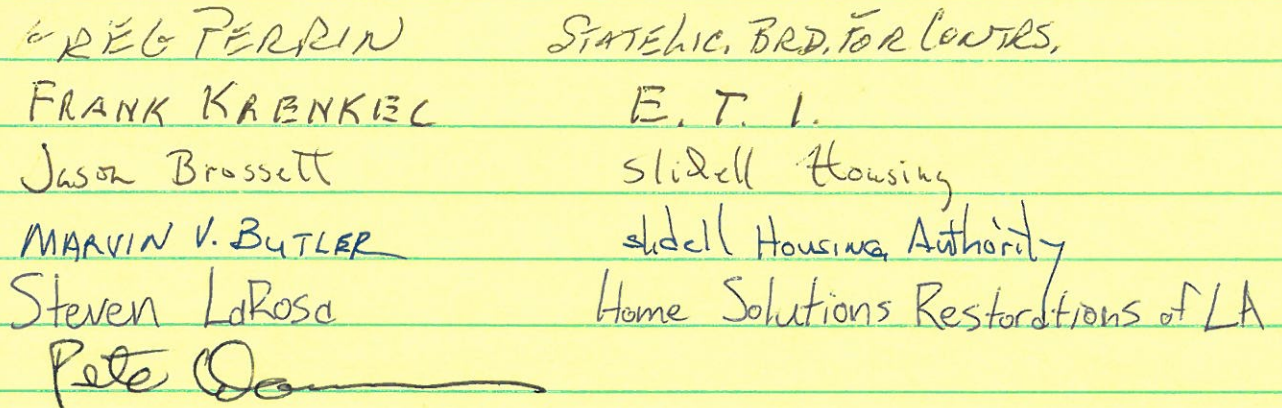 GREG PERRIN STATE LIC. BRD. FOR CONTRS.
FRANK KRENKEL E. T. I.
Jason Brossett Slidell Housing
MARVIN V. BUTLER slidell Housing Authority
Steven LaRosa Home Solutions Restorations of LA
Pete